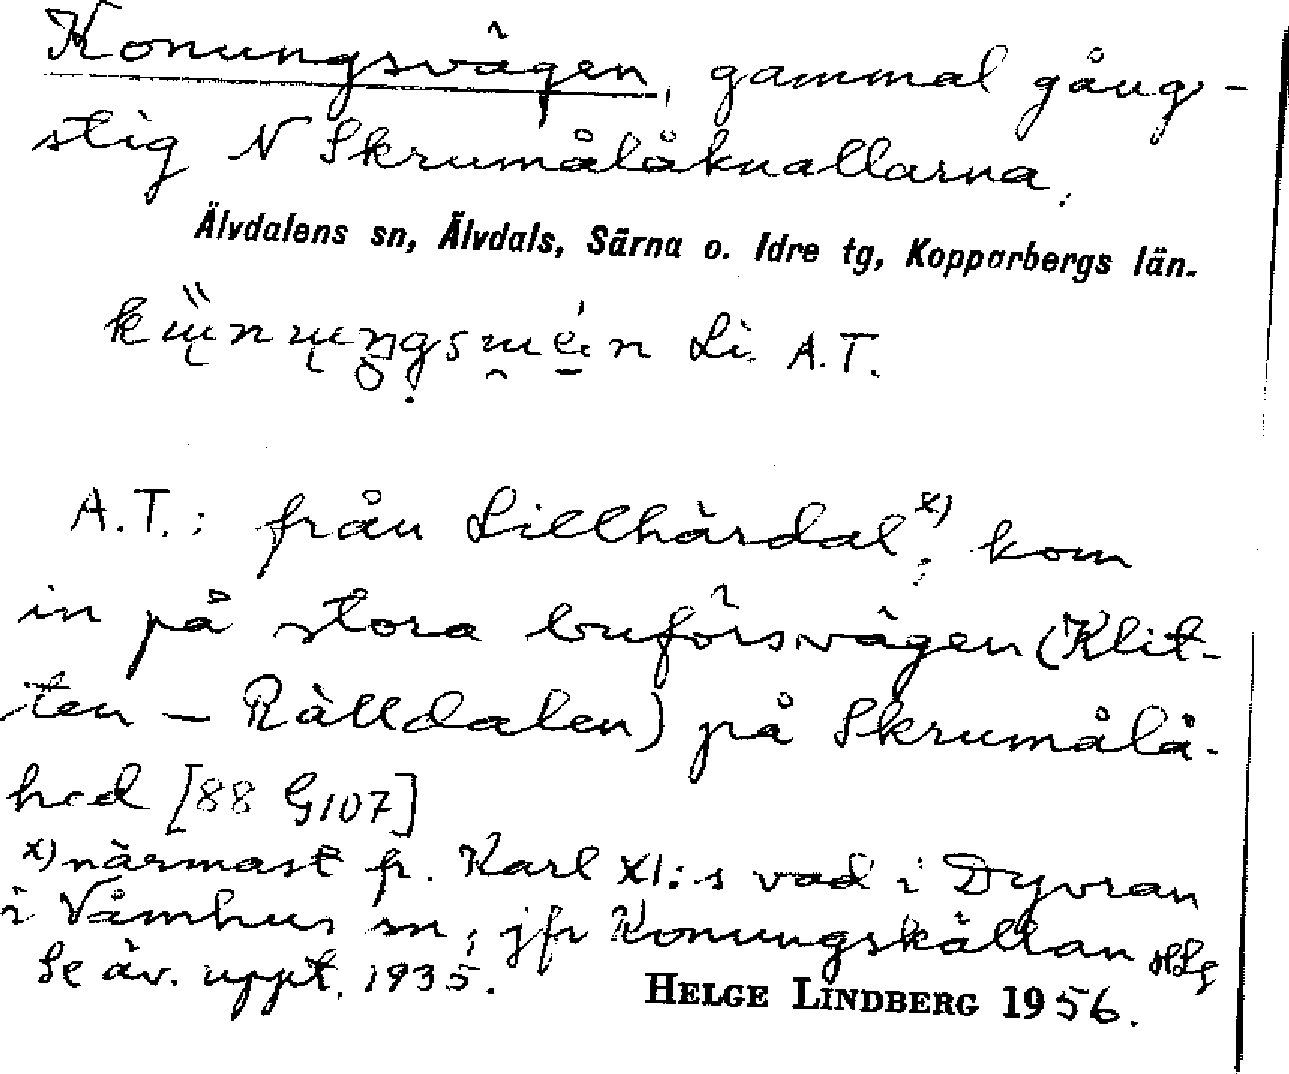 Konungsvägen, gammal gång-
stig N Skrumålåknallarna,
Älvdalens sn, Älvdals, Särna o. Idre tg, Kopparbergs län.
Li. A.T.
A.T.: från Lillhärdal x); kom
in på stora buförsvägen (Klit-
ten – Rälldalen) på Skrumålå-
hed [88 G107]
x) närmast fr. Karl XI:s vad i Dyvran
i Våmhus sn; jfr Konungskällan HLg
Se äv. uppt. 1935.
HELGE LINDBERG 1956.